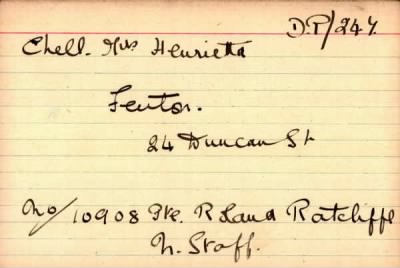 D.P/247.
Chell. Mrs Henrietta
Fenton.
24 Duncan St
No/10908 Pte. Roland Ratcliffe
N. Staff.